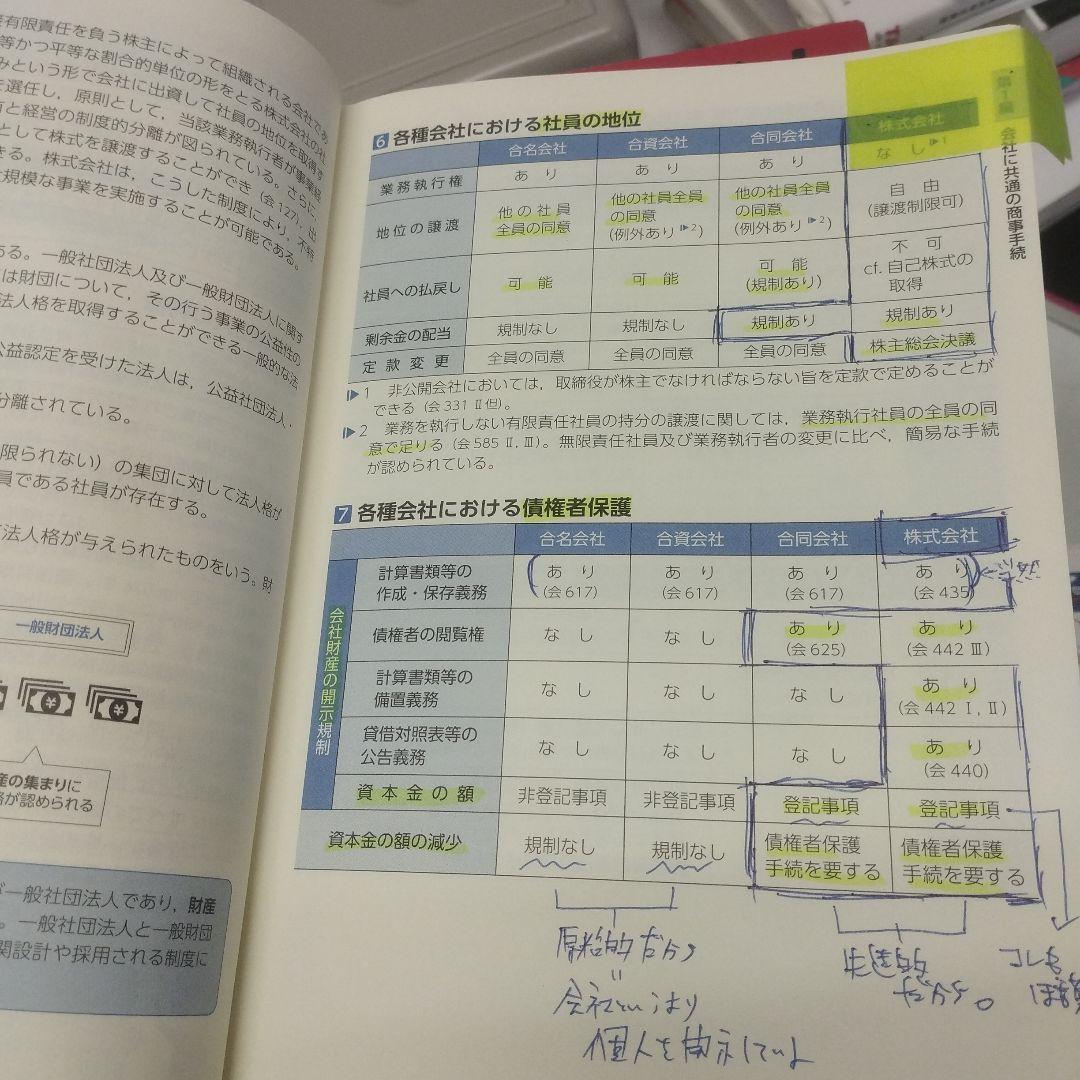 有限責任を負う株主によって組織される会社であ
等かつ平等な割合的単位の形をとる株式会社の社
みという形で会社に出資して社員の地位を取得す
を選任し，原則として，当該業務執行者が事業経
と経営の制度的分離が図られている。さらに，
として株式を譲渡することができ（会127），出
きる。株式会社は，こうした制度により，不特
規模な事業を実施することが可能である。
ある。一般社団法人及び一般財団法人に関す
は財団について，その行う事業の公益性の
法人格を取得することができる一般的な法
公益認定を受けた法人は，公益社団法人・
分離されている。
限られない）の集団に対して法人格が
員である社員が存在する。
法人格が与えられたものをいう。財
一般財団法人
産の集まりに
格が認められる
が一般社団法人であり，財産
。一般社団法人と一般財団
関設計や採用される制度に
第1編 会社に共通の商事手続
6 各種会社における社員の地位
合名会社 合資会社 合同会社 株式会社
業務執行権 あり あり あり なし▶1
地位の譲渡 他の社員全員の同意 他の社員全員の同意（例外あり▶2） 他の社員全員の同意（例外あり▶2） 自由（譲渡制限可）
社員への払戻し 可能 可能 可能（規制あり） 不可 cf. 自己株式の取得
剰余金の配当 規制なし 規制なし 規制あり 規制あり
定款変更 全員の同意 全員の同意 全員の同意 株主総会決議
▶1 非公開会社においては，取締役が株主でなければならない旨を定款で定めることが
できる（会331Ⅱ但）。
▶2 業務を執行しない有限責任社員の持分の譲渡に関しては，業務執行社員の全員の同
意で足りる（会585Ⅱ，Ⅲ）。無限責任社員及び業務執行者の変更に比べ，簡易な手続
が認められている。
7 各種会社における債権者保護
合名会社 合資会社 合同会社 株式会社
会社財産の開示規制
計算書類等の作成・保存義務 あり（会617） あり（会617） あり（会617） あり（会435）
債権者の閲覧権 なし なし あり（会625） あり（会442Ⅲ）
計算書類等の備置義務 なし なし なし あり（会442Ⅰ，Ⅱ）
貸借対照表等の公告義務 なし なし なし あり（会440）
資本金の額 非登記事項 非登記事項 登記事項 登記事項
資本金の額の減少 規制なし 規制なし 債権者保護手続を要する 債権者保護手続を要する
原始的だから
会社というより
個人を
だから。
コレも